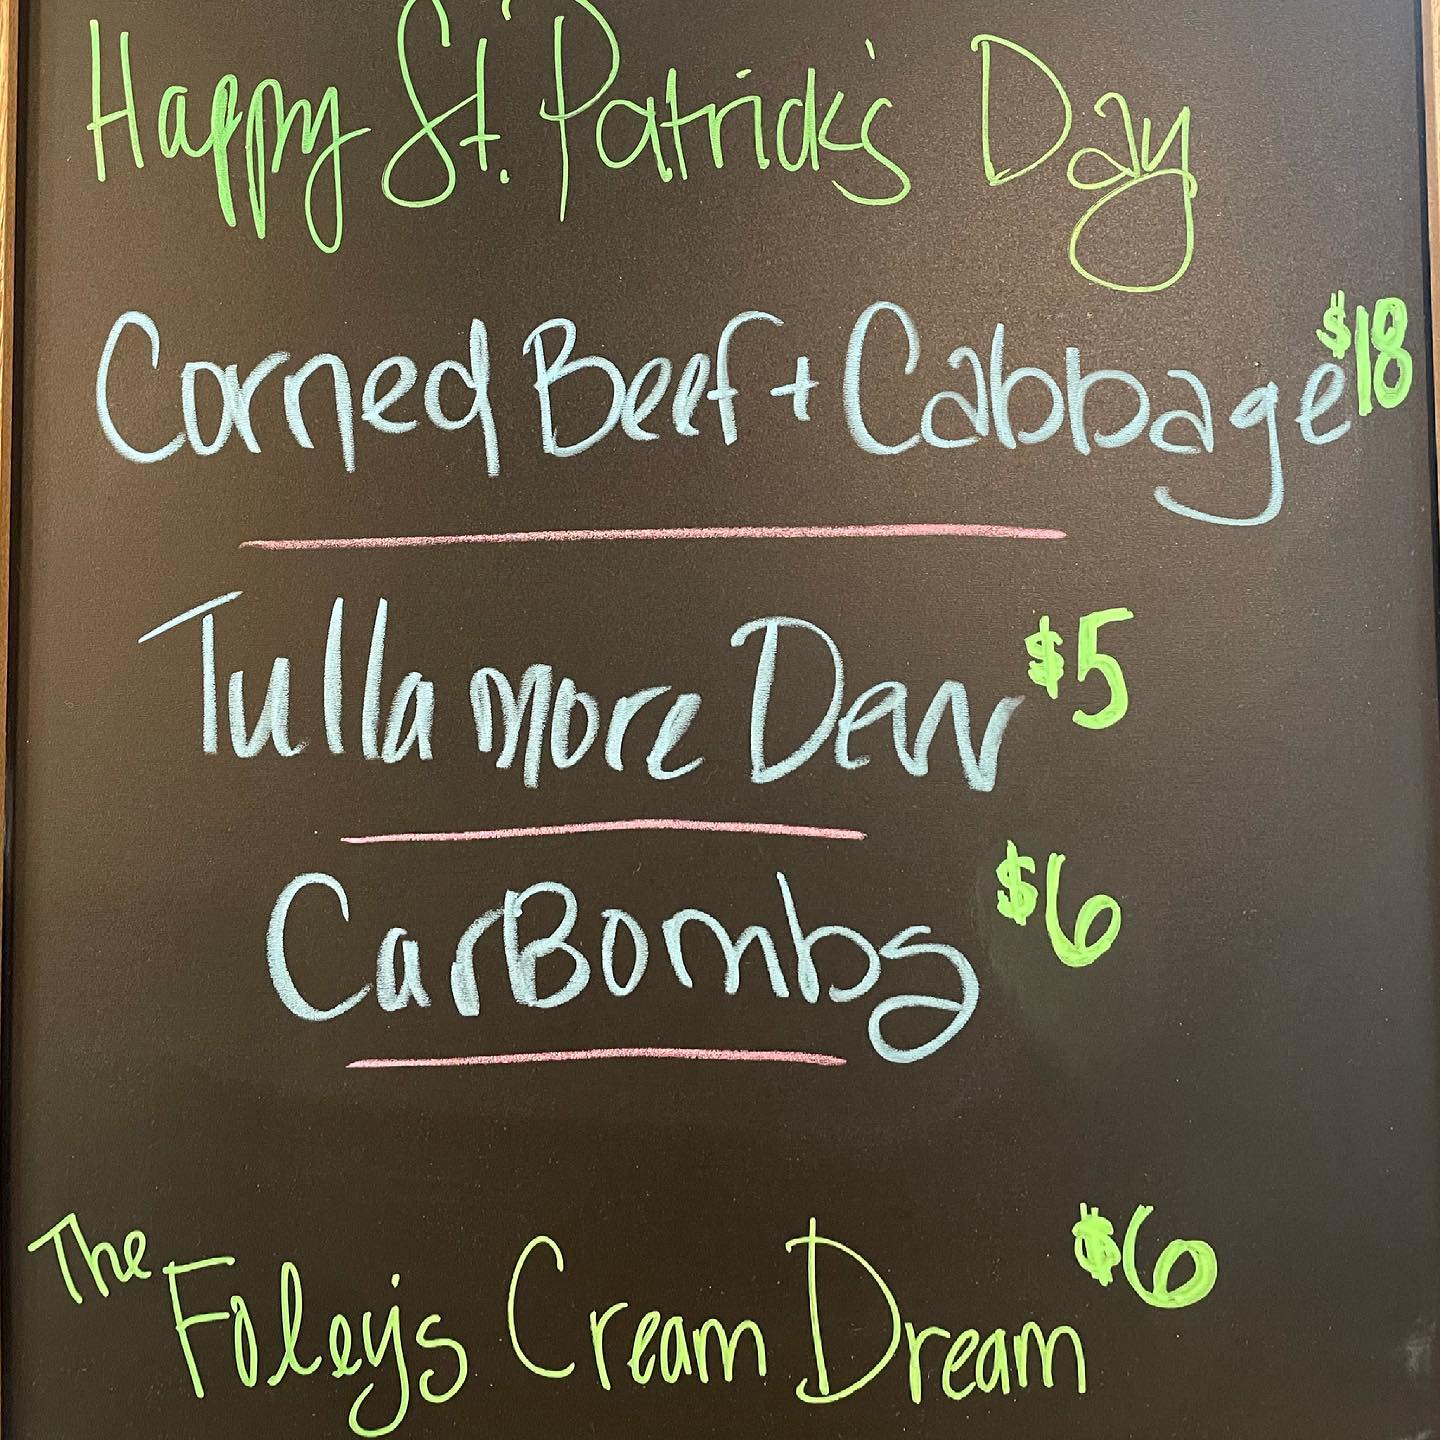 Happy St. Patrick's Day
Corned Beef + Cabbage $18
Tullamore Dew $5
CarBombs $6
The Foley's Cream Dream $6